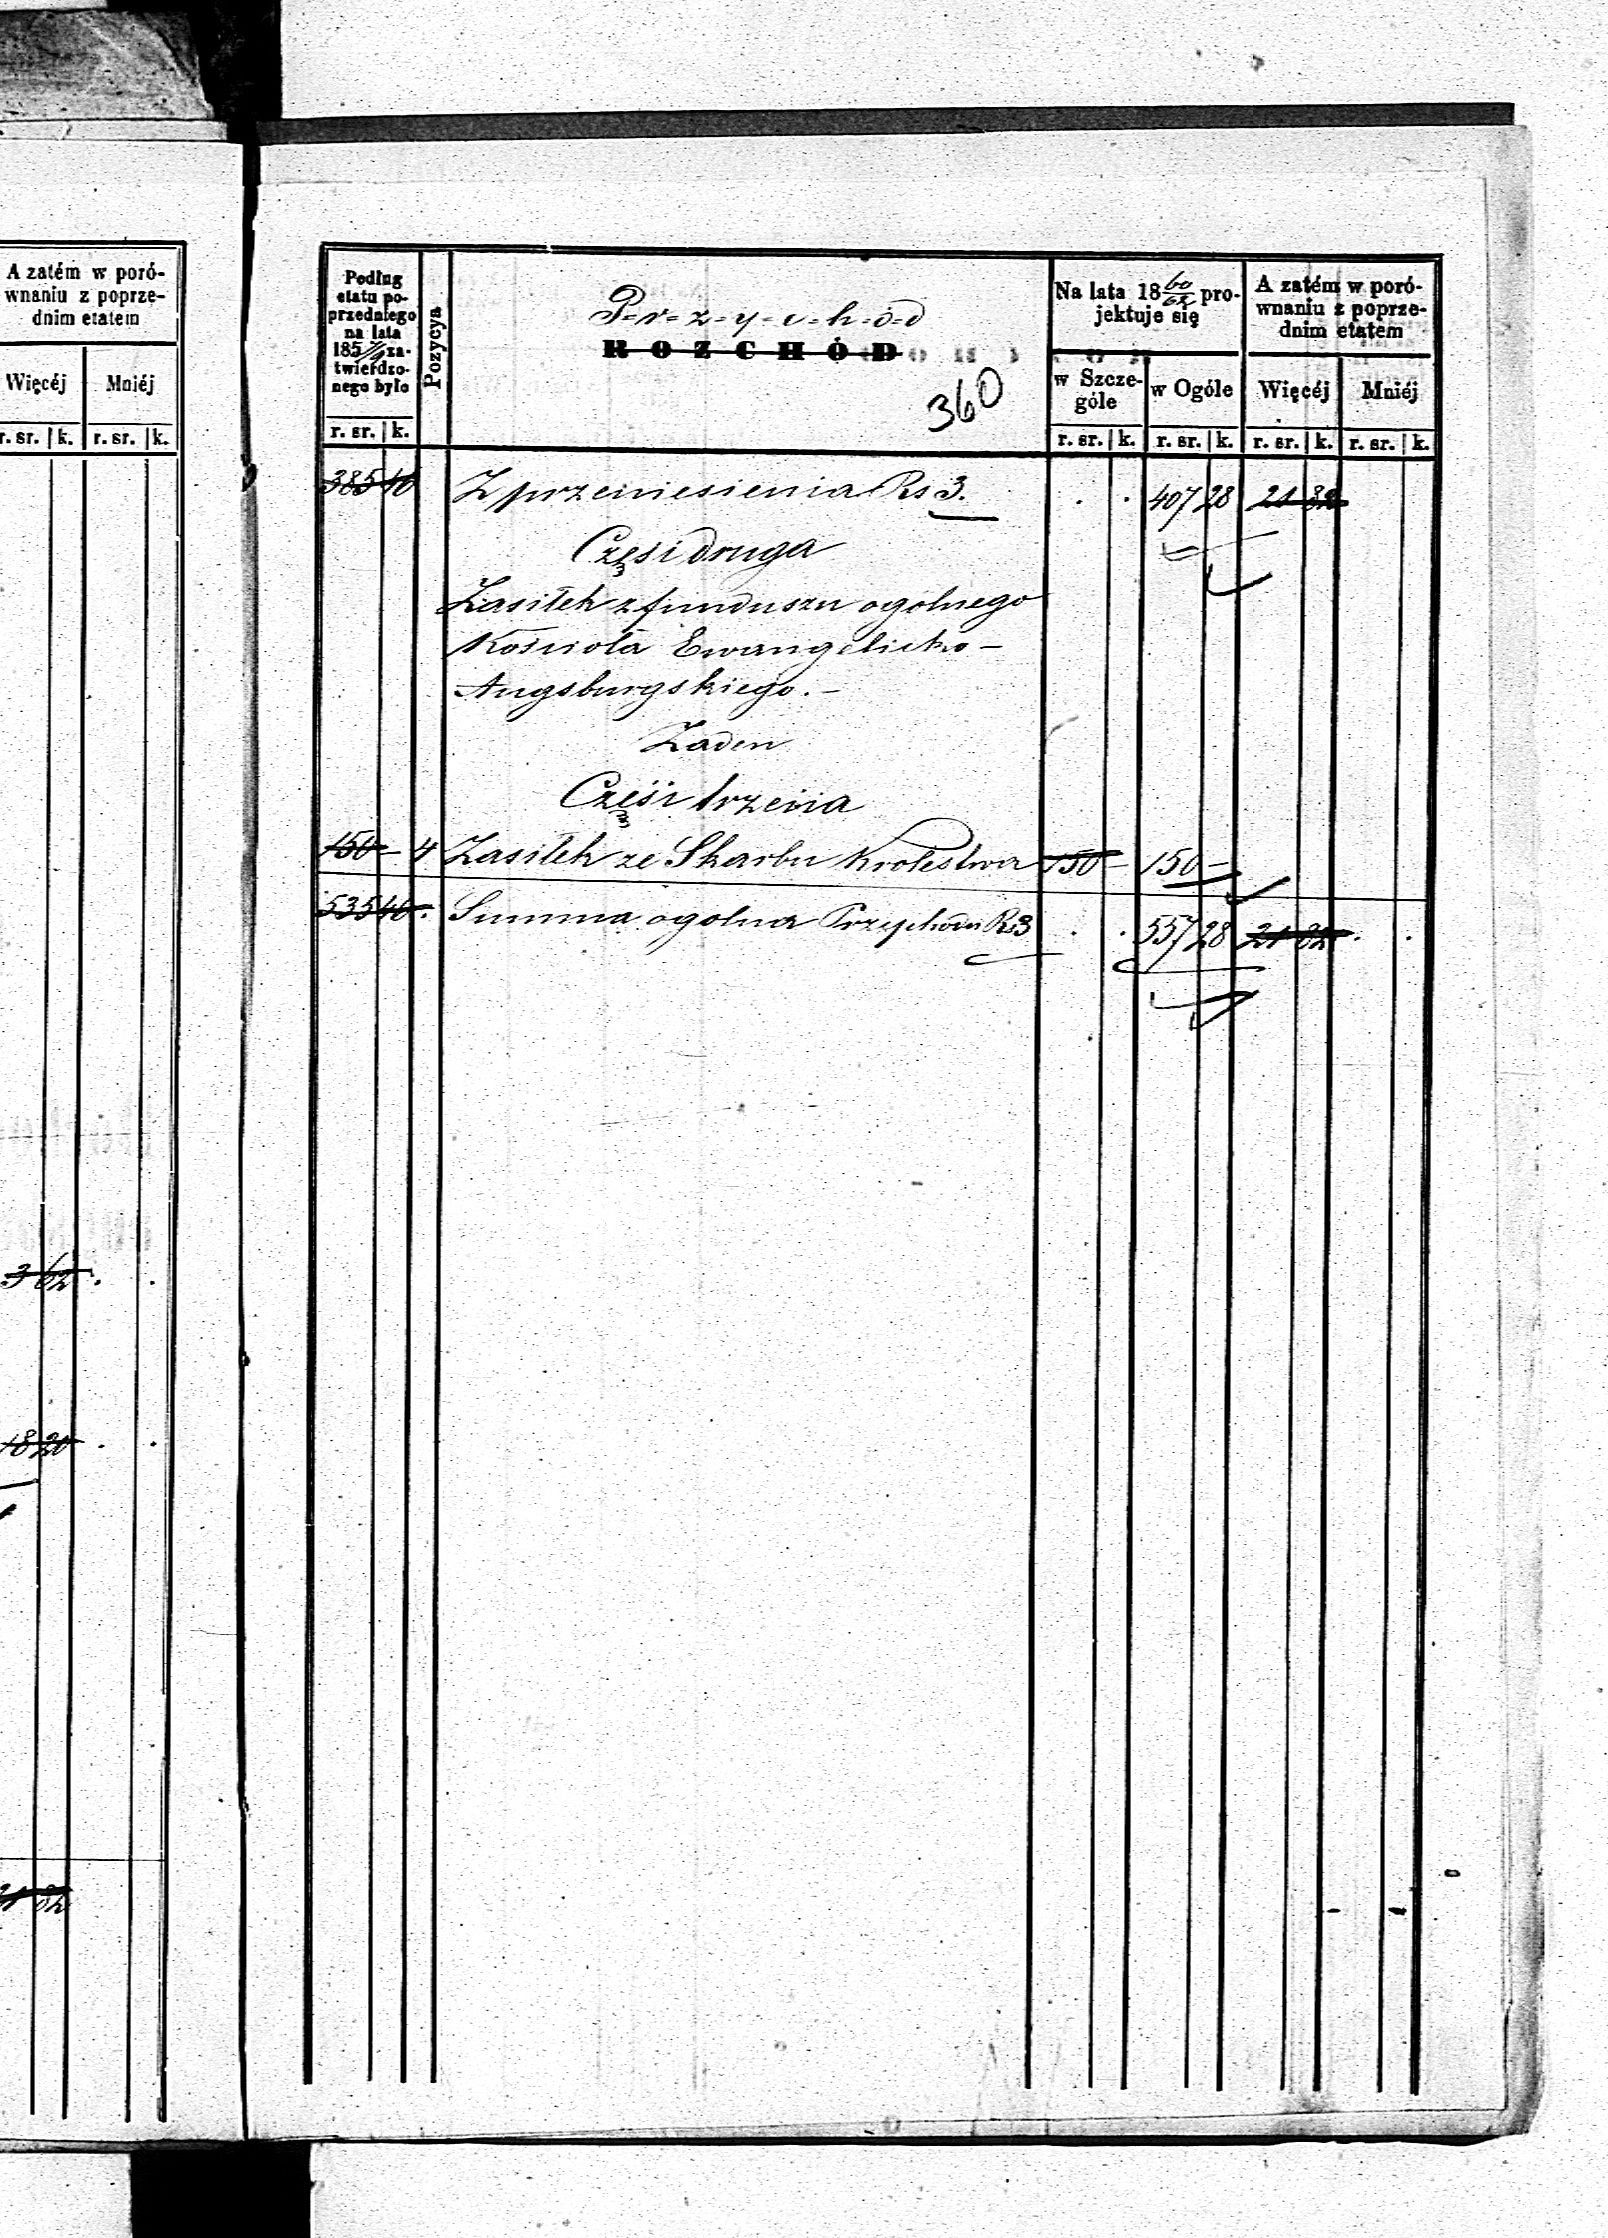 A zatém w poró-
wnaniu z poprze-
dnim etatem
Więcéj Mniéj
r. sr. k. r. sr. k.
3 62 . .
18 20 . .
21 82
Podług
etatu po-
przedniego
na lata
185 za-
twierdzo-
nego było
r. sr. k.
Pozycya
P=r=z=y=c=h=ó=d
ROZCHÓD
360
Na lata 18 60/62 pro-
jektuje się
w Szcze-
góle
w Ogóle
r. sr. k. r. sr. k.
A zatém w poró-
wnaniu z poprze-
dnim etatem
Więcéj Mniéj
r. sr. k. r. sr. k.
385 46 Z przeniesienia Rs 3. . . 407 28 21 82
Części druga
Zasiłek z funduszu ogolnego
Kościoła Ewangelicko-
Augsburgskiego.-
Żaden
Części trzecia
150 - 4 Zasiłek ze Skarbu Krolestwa 150 - 150 -
535 46. Summa ogolna Przychodu Rs 3 . . 557 28 21 82 . .